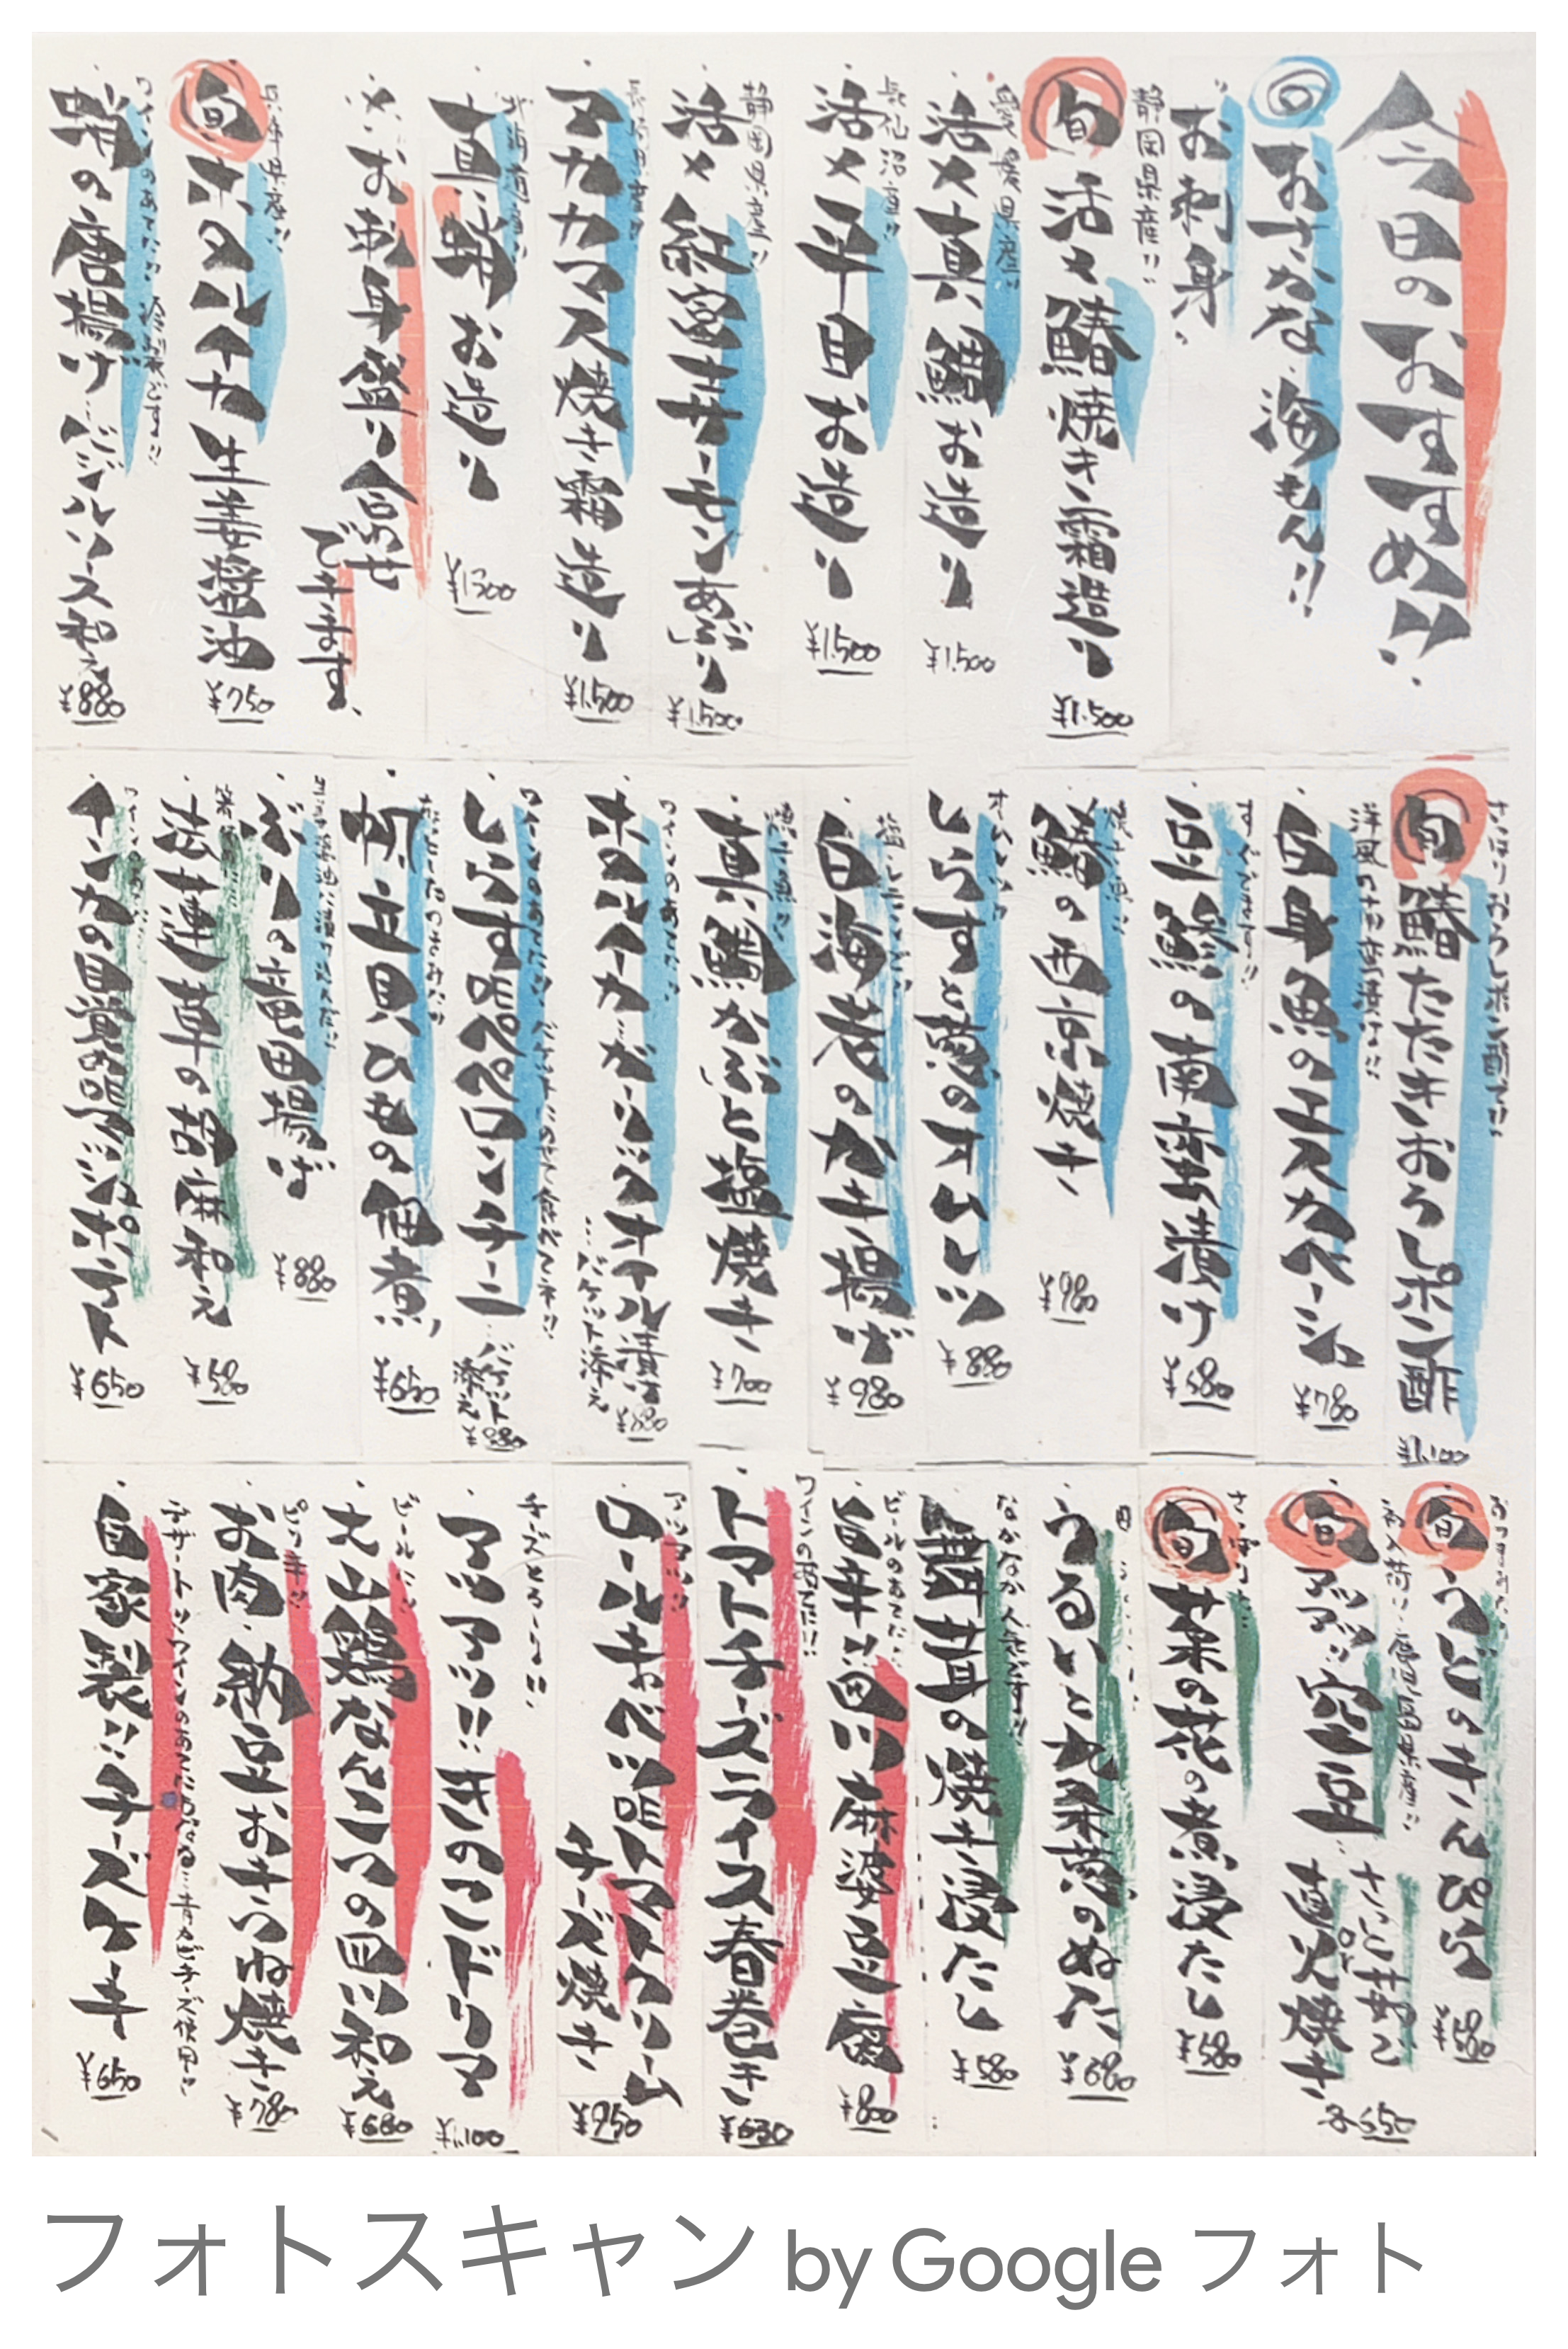 今日のおすすめ!!
おさかな 海もん!!
お刺身
静岡県産!!
旬 活〆鰆焼き霜造り ¥1.500
愛媛県産!!
活〆真鯛お造り ¥1.500
気仙沼産!!
活〆平目お造り ¥1.500
静岡県産!!
活〆紅富士サーモンあぶり ¥1.500
長崎県産!!
アカカマス焼き霜造り ¥1.500
北海道産!!
真蛸お造り ¥1300
お刺身盛り合わせ
できます、
兵庫県産!!
旬 ホタルイカ 生姜醤油 ¥750
ワインのあてに!! 冷製です!!
蛸の唐揚げ バジルソース和え ¥880
さっぱりおろしポン酢で!!
旬 鰆たたきおろしポン酢 ¥1.100
洋風の甘酢漬け!!
白身魚のエスカベーシュ ¥780
すぐでます!!
豆鯵の南蛮漬け ¥580
焼き魚!!
鰆の西京焼き ¥980
オムレツ
しらすと葱のオムレツ ¥880
塩とレモンでどうぞ!!
白海老のかき揚げ ¥980
焼き魚!!
真鯛かぶと塩焼き ¥700
ワインのあてに!!
ホタルイカ ガーリックオイル漬け
…バケット添え ¥880
ワインのあてに!! バケットにのせて食べてネ!!
しらすdeペペロンチーニ
バケット添え ¥880
帆立貝ひもの佃煮 ¥650
ぶりの竜田揚げ ¥880
菠薐草の胡麻和え ¥580
チンカの自覚deアンジョポテト ¥650
旬 うどのきんぴら ¥580
初入荷!! 鹿児島県産!!
旬 アツアツ!! 空豆
さっと茹で
or
直火焼き ¥550
旬 菜の花の煮浸たし ¥580
うるいと九条葱のぬた ¥680
なかなか人気です!!
舞茸の焼き浸たし ¥580
ビールのあてに!!
旨辛!! 四川麻婆豆腐 ¥800
ワインのあてに!!
トマトチーズライス春巻き ¥630
アツアツ!!
ロールキャベツdeトマトクリーム
チーズ焼き ¥950
チーズとろ〜り!!
アツアツ!! 茸のマンドリア ¥1.100
ビールに!!
大山鶏なんこつの四川和え ¥680
ピリ辛!!
お肉・納豆おきつね焼き ¥780
デザート!! ワインのあてにもなる…青カビチーズ使用!!
自家製!! チーズケーキ ¥650
フォトスキャン by Google フォト